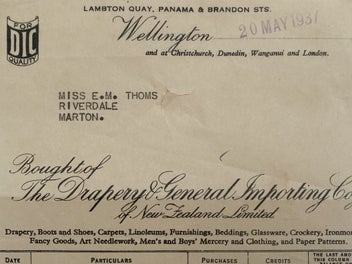 LAMBTON QUAY, PANAMA & BRANDON STS.
FOR
DIC
QUALITY
Wellington
20 MAY 1937
and at Christchurch, Dunedin, Wanganui and London.
MISS E.M. THOMS
RIVERDALE
MARTON.
Bought of
The Drapery & General Importing Co
of New Zealand Limited
Drapery, Boots and Shoes, Carpets, Linoleums, Furnishings, Beddings, Glassware, Crockery, Ironmon
Fancy Goods, Art Needlework, Men's and Boys' Mercery and Clothing, and Paper Patterns.
DATE PARTICULARS PURCHASES CREDITS THE LAST AMO
THIS COLUMN